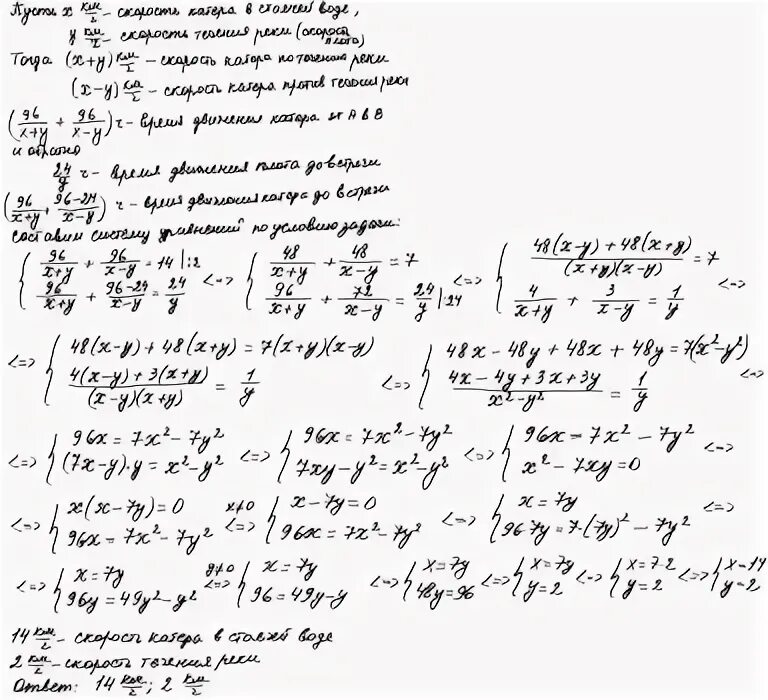 Пусть x км/ч - скорость катера в стоячей воде,
y км/ч - скорость течения реки (скорость плота)
Тогда (x+y) км/ч - скорость катера по течению реки
(x-y) км/ч - скорость катера против течения реки
(96/(x+y) + 96/(x-y)) ч - время движения катера из A в B
и обратно
24/y ч - время движения плота до встречи
(96/(x+y) + (96-24)/(x-y)) ч - время движения катера до встречи
Составим систему уравнений по условию задачи:
{ 96/(x+y) + 96/(x-y) = 14 |:2 ; 96/(x+y) + (96-24)/(x-y) = 24/y <=> { 48/(x+y) + 48/(x-y) = 7 ; 96/(x+y) + 72/(x-y) = 24/y |:24 <=> { (48(x-y) + 48(x+y))/((x+y)(x-y)) = 7 ; 4/(x+y) + 3/(x-y) = 1/y <=>
<=> { 48(x-y) + 48(x+y) = 7(x+y)(x-y) ; (4(x-y) + 3(x+y))/((x-y)(x+y)) = 1/y <=> { 48x - 48y + 48x + 48y = 7(x²-y²) ; (4x - 4y + 3x + 3y)/(x²-y²) = 1/y <=>
<=> { 96x = 7x² - 7y² ; (7x-y)·y = x² - y² <=> { 96x = 7x² - 7y² ; 7xy - y² = x² - y² <=> { 96x = 7x² - 7y² ; x² - 7xy = 0 <=>
<=> { x(x-7y) = 0 ; 96x = 7x² - 7y² x≠0 <=> { x - 7y = 0 ; 96x = 7x² - 7y² <=> { x = 7y ; 96·7y = 7·(7y)² - 7y² <=>
<=> { x = 7y ; 96y = 49y² - y² y≠0 <=> { x = 7y ; 96 = 49y - y <=> { x = 7y ; 48y = 96 <=> { x = 7y ; y = 2 <=> { x = 7·2 ; y = 2 <=> { x = 14 ; y = 2
14 км/ч - скорость катера в стоячей воде
2 км/ч - скорость течения реки
Ответ: 14 км/ч; 2 км/ч